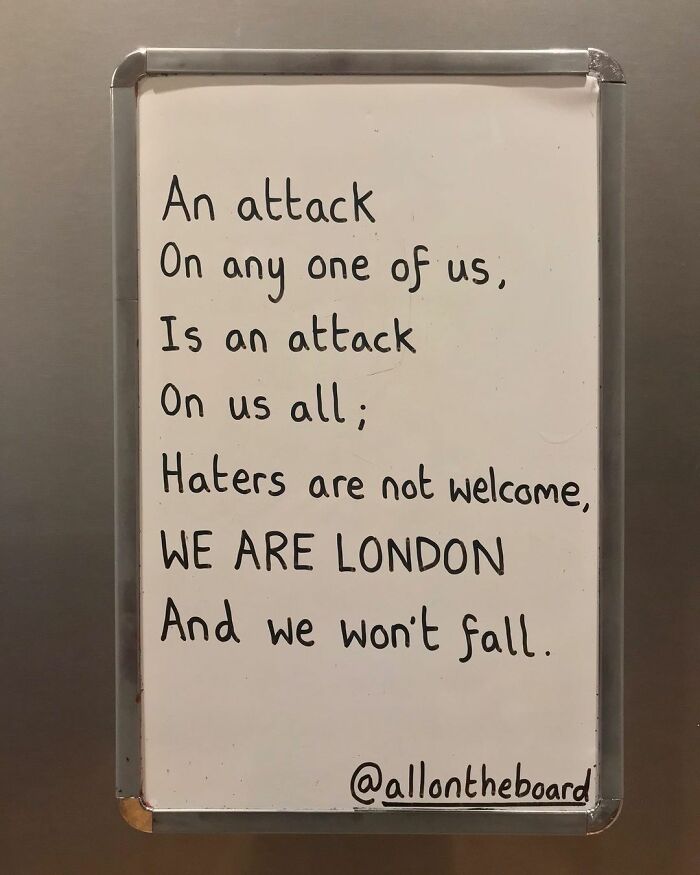 An attack
On any one of us,
Is an attack
On us all;
Haters are not welcome,
WE ARE LONDON
And we won't fall.
@allontheboard